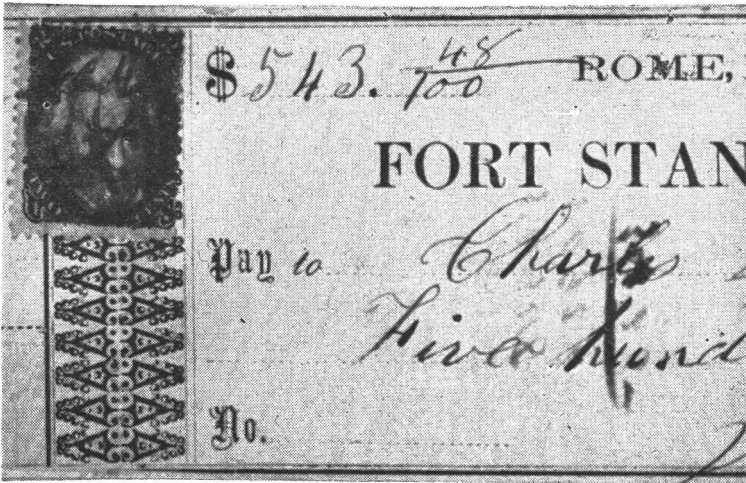 $543. 48/100 ROME,
FORT STAN
Pay to Charles
Five hund
No.